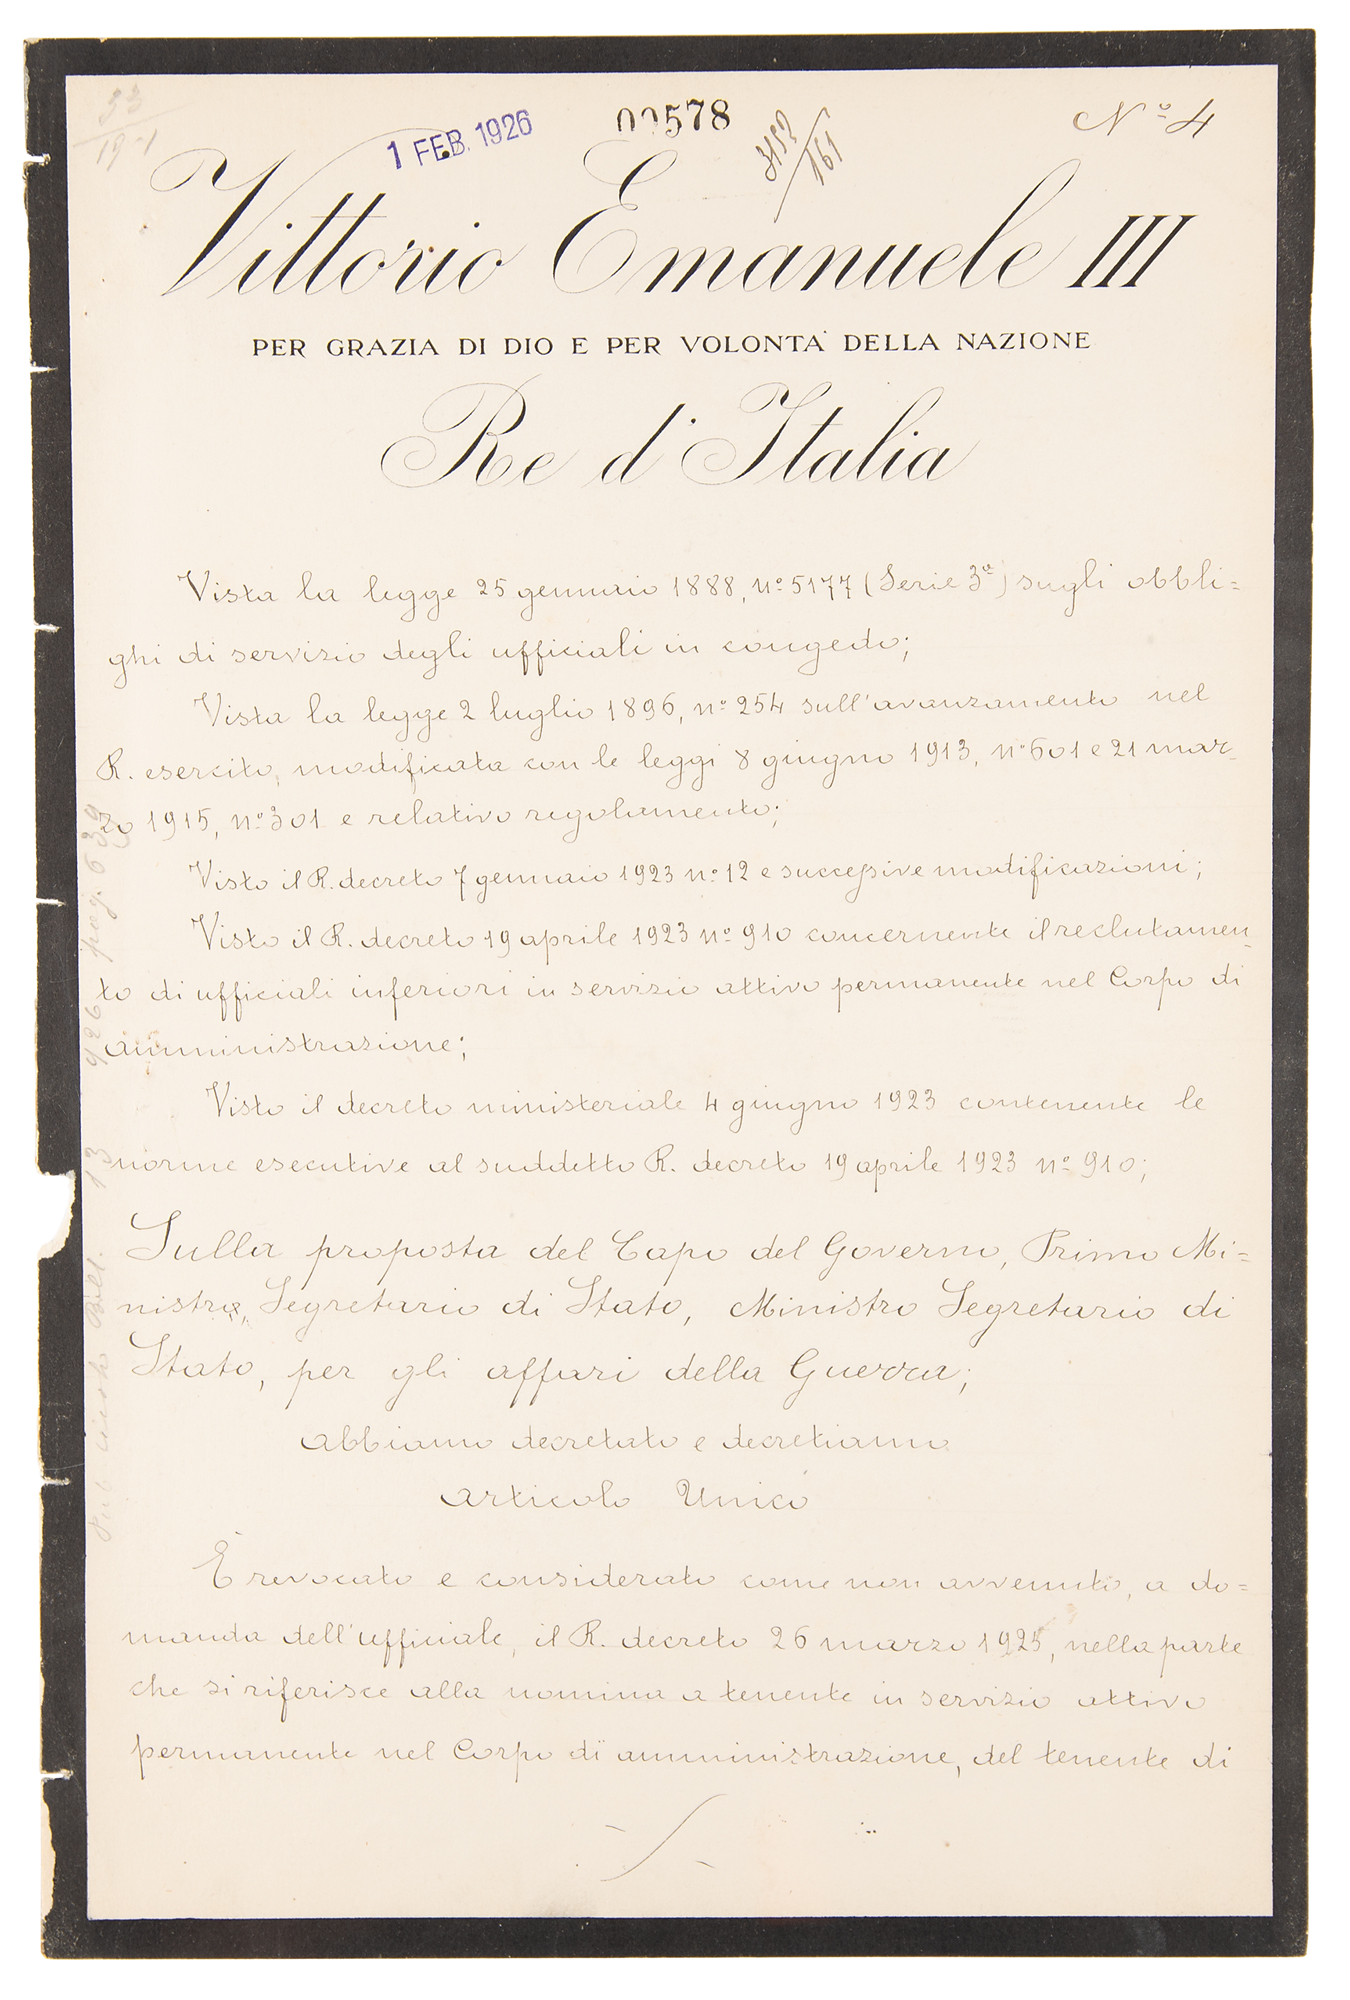 33
19-1
1 FEB. 1926
00578
3152
161
Nº 4
Vittorio Emanuele III
PER GRAZIA DI DIO E PER VOLONTA' DELLA NAZIONE
Re d'Italia
Vista la legge 25 gennaio 1888, nº 5177 (Serie 3ª) sugli obbli=
ghi di servizio degli ufficiali in congedo;
Vista la legge 2 luglio 1896, nº 254 sull'avanzamento nel
R. esercito, modificata con le leggi 8 giugno 1913, nº 601 e 21 mar-
zo 1915, nº 301 e relativo regolamento;
Visto il R. decreto 7 gennaio 1923 nº 12 e successive modificazioni;
Visto il R. decreto 19 aprile 1923 nº 910 concernente il reclutamen-
to di ufficiali inferiori in servizio attivo permanente nel Corpo di
amministrazione;
Visto il decreto ministeriale 4 giugno 1923 contenente le
norme esecutive al suddetto R. decreto 19 aprile 1923 nº 910;
Sulla proposta del Capo del Governo, Primo Mi=
nistro, Segretario di Stato, Ministro Segretario di
Stato, per gli affari della Guerra;
abbiamo decretato e decretiamo
articolo Unico
È revocato e considerato come non avvenuto, a do=
manda dell'ufficiale, il R. decreto 26 marzo 1925, nella parte
che si riferisce alla nomina a tenente in servizio attivo
permanente nel Corpo di amministrazione, del tenente di
Boll. 13 926 pag. 639